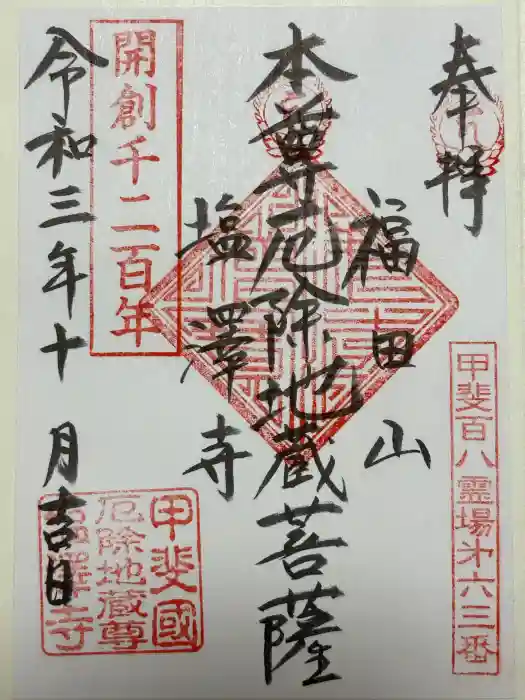 奉拝
甲斐百八霊場第六三番
福田山
本尊厄除地蔵菩薩
塩澤寺
開創千二百年
甲斐國
厄除地蔵尊
塩澤寺
令和三年十月吉日